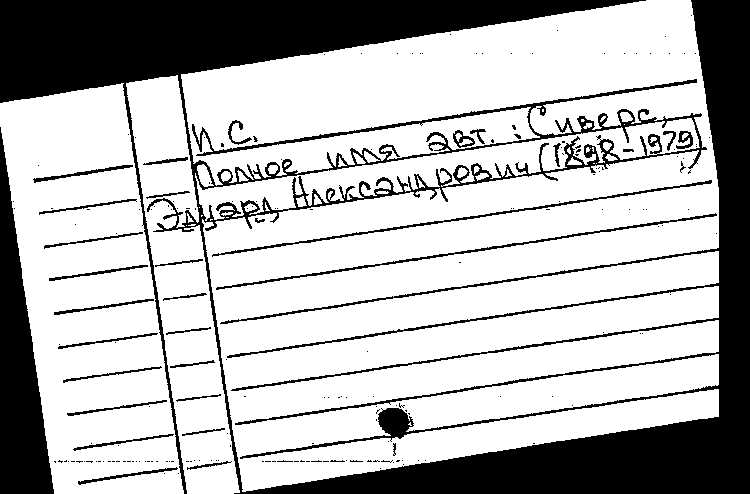 И.С.
Полное имя авт.: Сиверс,
Эдуард Александрович (1898-1979)